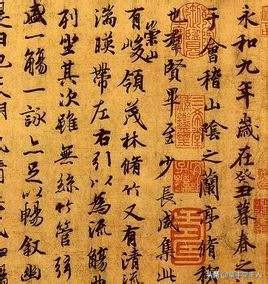 永和九年歲在癸丑暮春之
于會稽山陰之蘭亭脩
也羣賢畢至少長咸集此
有崇山峻領茂林脩竹又有清流
湍暎帶左右引以為流觴曲
列坐其次雖無絲竹管弦
盛一觴一詠亦足以暢叙幽
是日也